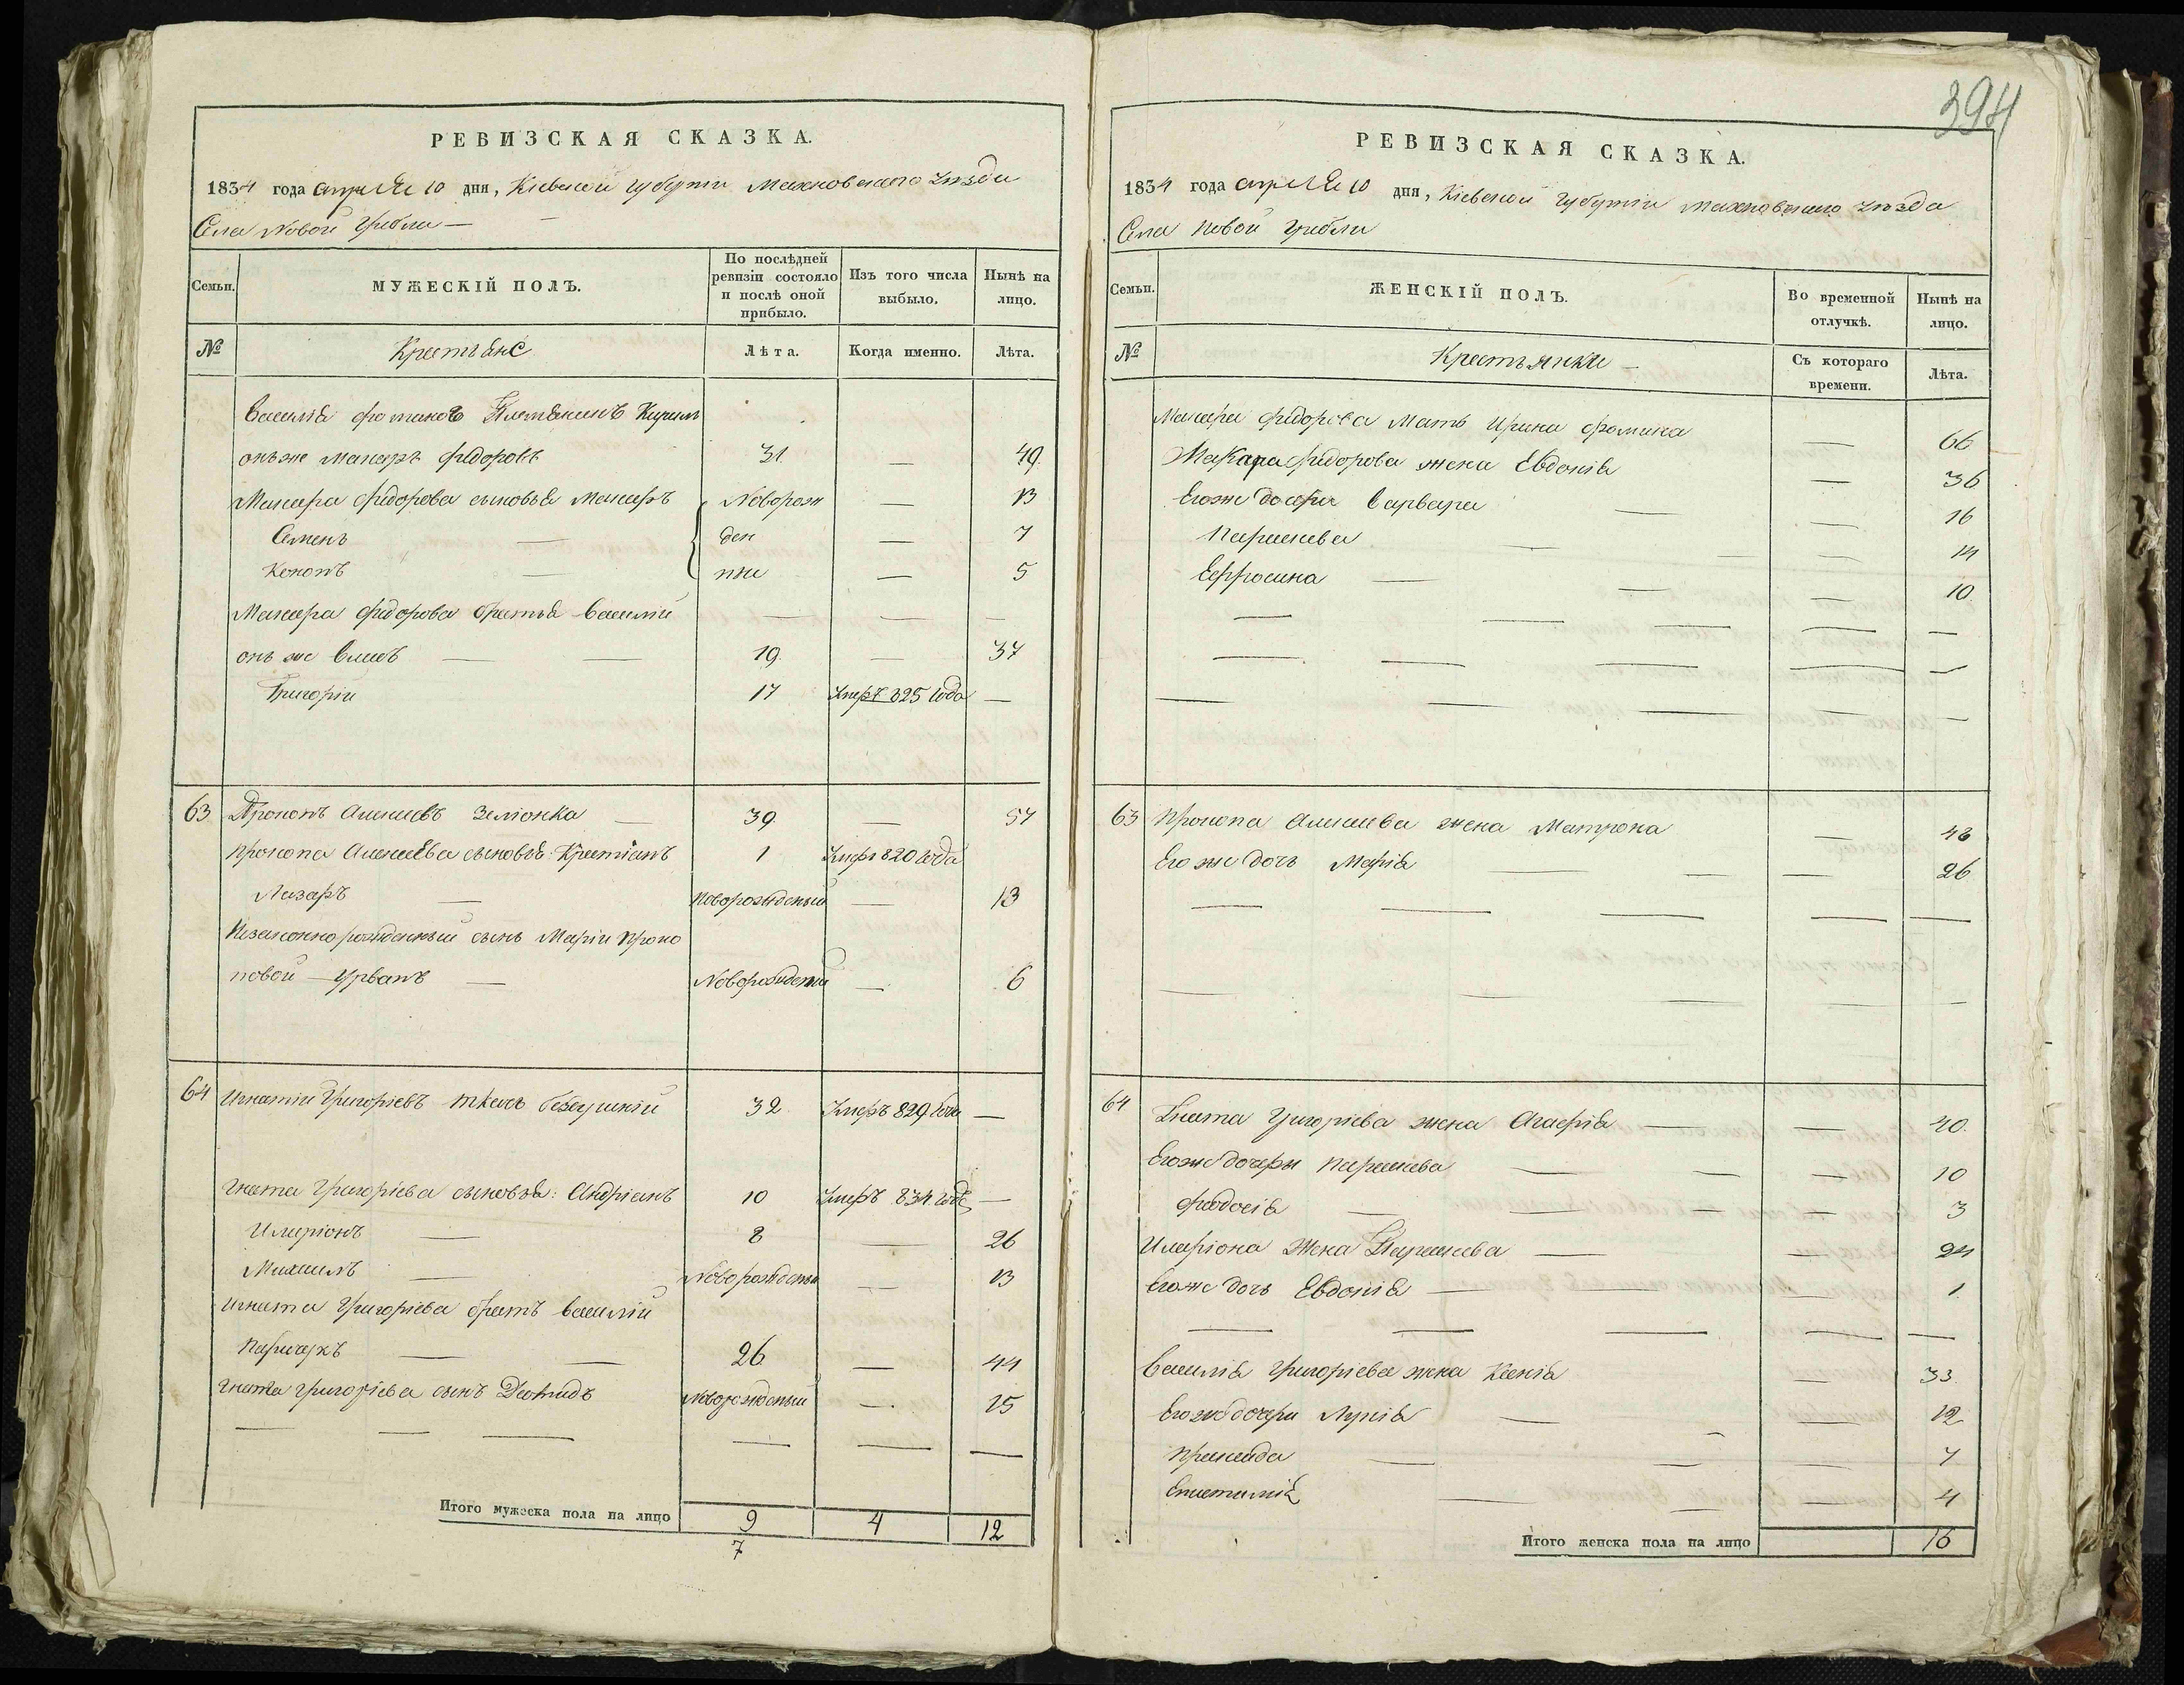 394
РЕВИЗСКАЯ СКАЗКА.
1834 года апреля 10 дня, Кіевской губерніи Махновского уезда
Села Новой Гребли —
Семьи. МУЖЕСКІЙ ПОЛЪ. По послѣдней ревизіи состояло и послѣ оной прибыло. Изъ того числа выбыло. Нынѣ на лицо.
№ Крестьяне Лѣта. Когда именно. Лѣта.
Василія Племянникъ
онъ же Макаръ Федоровъ 31. — 49.
Макара Федорова сыновья Макаръ Новорож — 13
Семенъ — ден — 7
Кононъ — ные — 5
Макара Федорова братья Василій — — —
онъ же — — 19. — 37
Григорій 17 Умеръ 825 года —
63 Прокопъ Алексеевъ Зеліонка — 39. — 57
Прокопа Алексеева сыновья: 1 Умеръ 820 года
Лазаръ — Новорожденый — 13
Незаконнорожденный сынъ Маріи Проко
повой — Урванъ — Новорожденый — 6
64 Игнатій Григоріевъ 32. Умеръ 829 года —
Гната Григоріева сыновья: Андріанъ 10 Умеръ 834. года —
Иларіонъ — 8 — 26
Михаилъ — Новорожденый — 13
Игната Григоріева братъ Василій
— — 26 — 44
Гната Григоріева сынъ Новорожденый — 15
— — — — — —
Итого мужеска пола на лицо 9 4 12
7
РЕВИЗСКАЯ СКАЗКА.
1834 года апреля 10 дня, Кіевской губерніи Махновского уезда
Села Новой Гребли
Семьи. ЖЕНСКІЙ ПОЛЪ. Во временной отлучкѣ. Нынѣ на лицо.
№ Крестьянки — Съ котораго времени. Лѣта.
Макара Федорова Мать Ирина Фомина — 66
Макара Федорова жена Евдокія — 36
Егоже дочери Варвара — — 16
Параскева — — — 14
Ефросина — — — 10.
— — — — —
— — — — —
— — — —
63 Прокопа Алексеева жена Матрона — 48
Его же дочь Марія — — — 26
— — — — —
— — — —
64 Гната Григоріева жена Агафія — — 40.
Егоже дочери Параскева — — — 10
Феодосія — — — — 3
Иларіона Жена Параскева — — 24
Егоже дочь Евдокія — — — 1.
— — — — —
Василія Григоріева жена Ксенія — 33.
Егоже дочери Лукія — — — 12
— — — 7
— — — 4
Итого женска пола на лицо 16